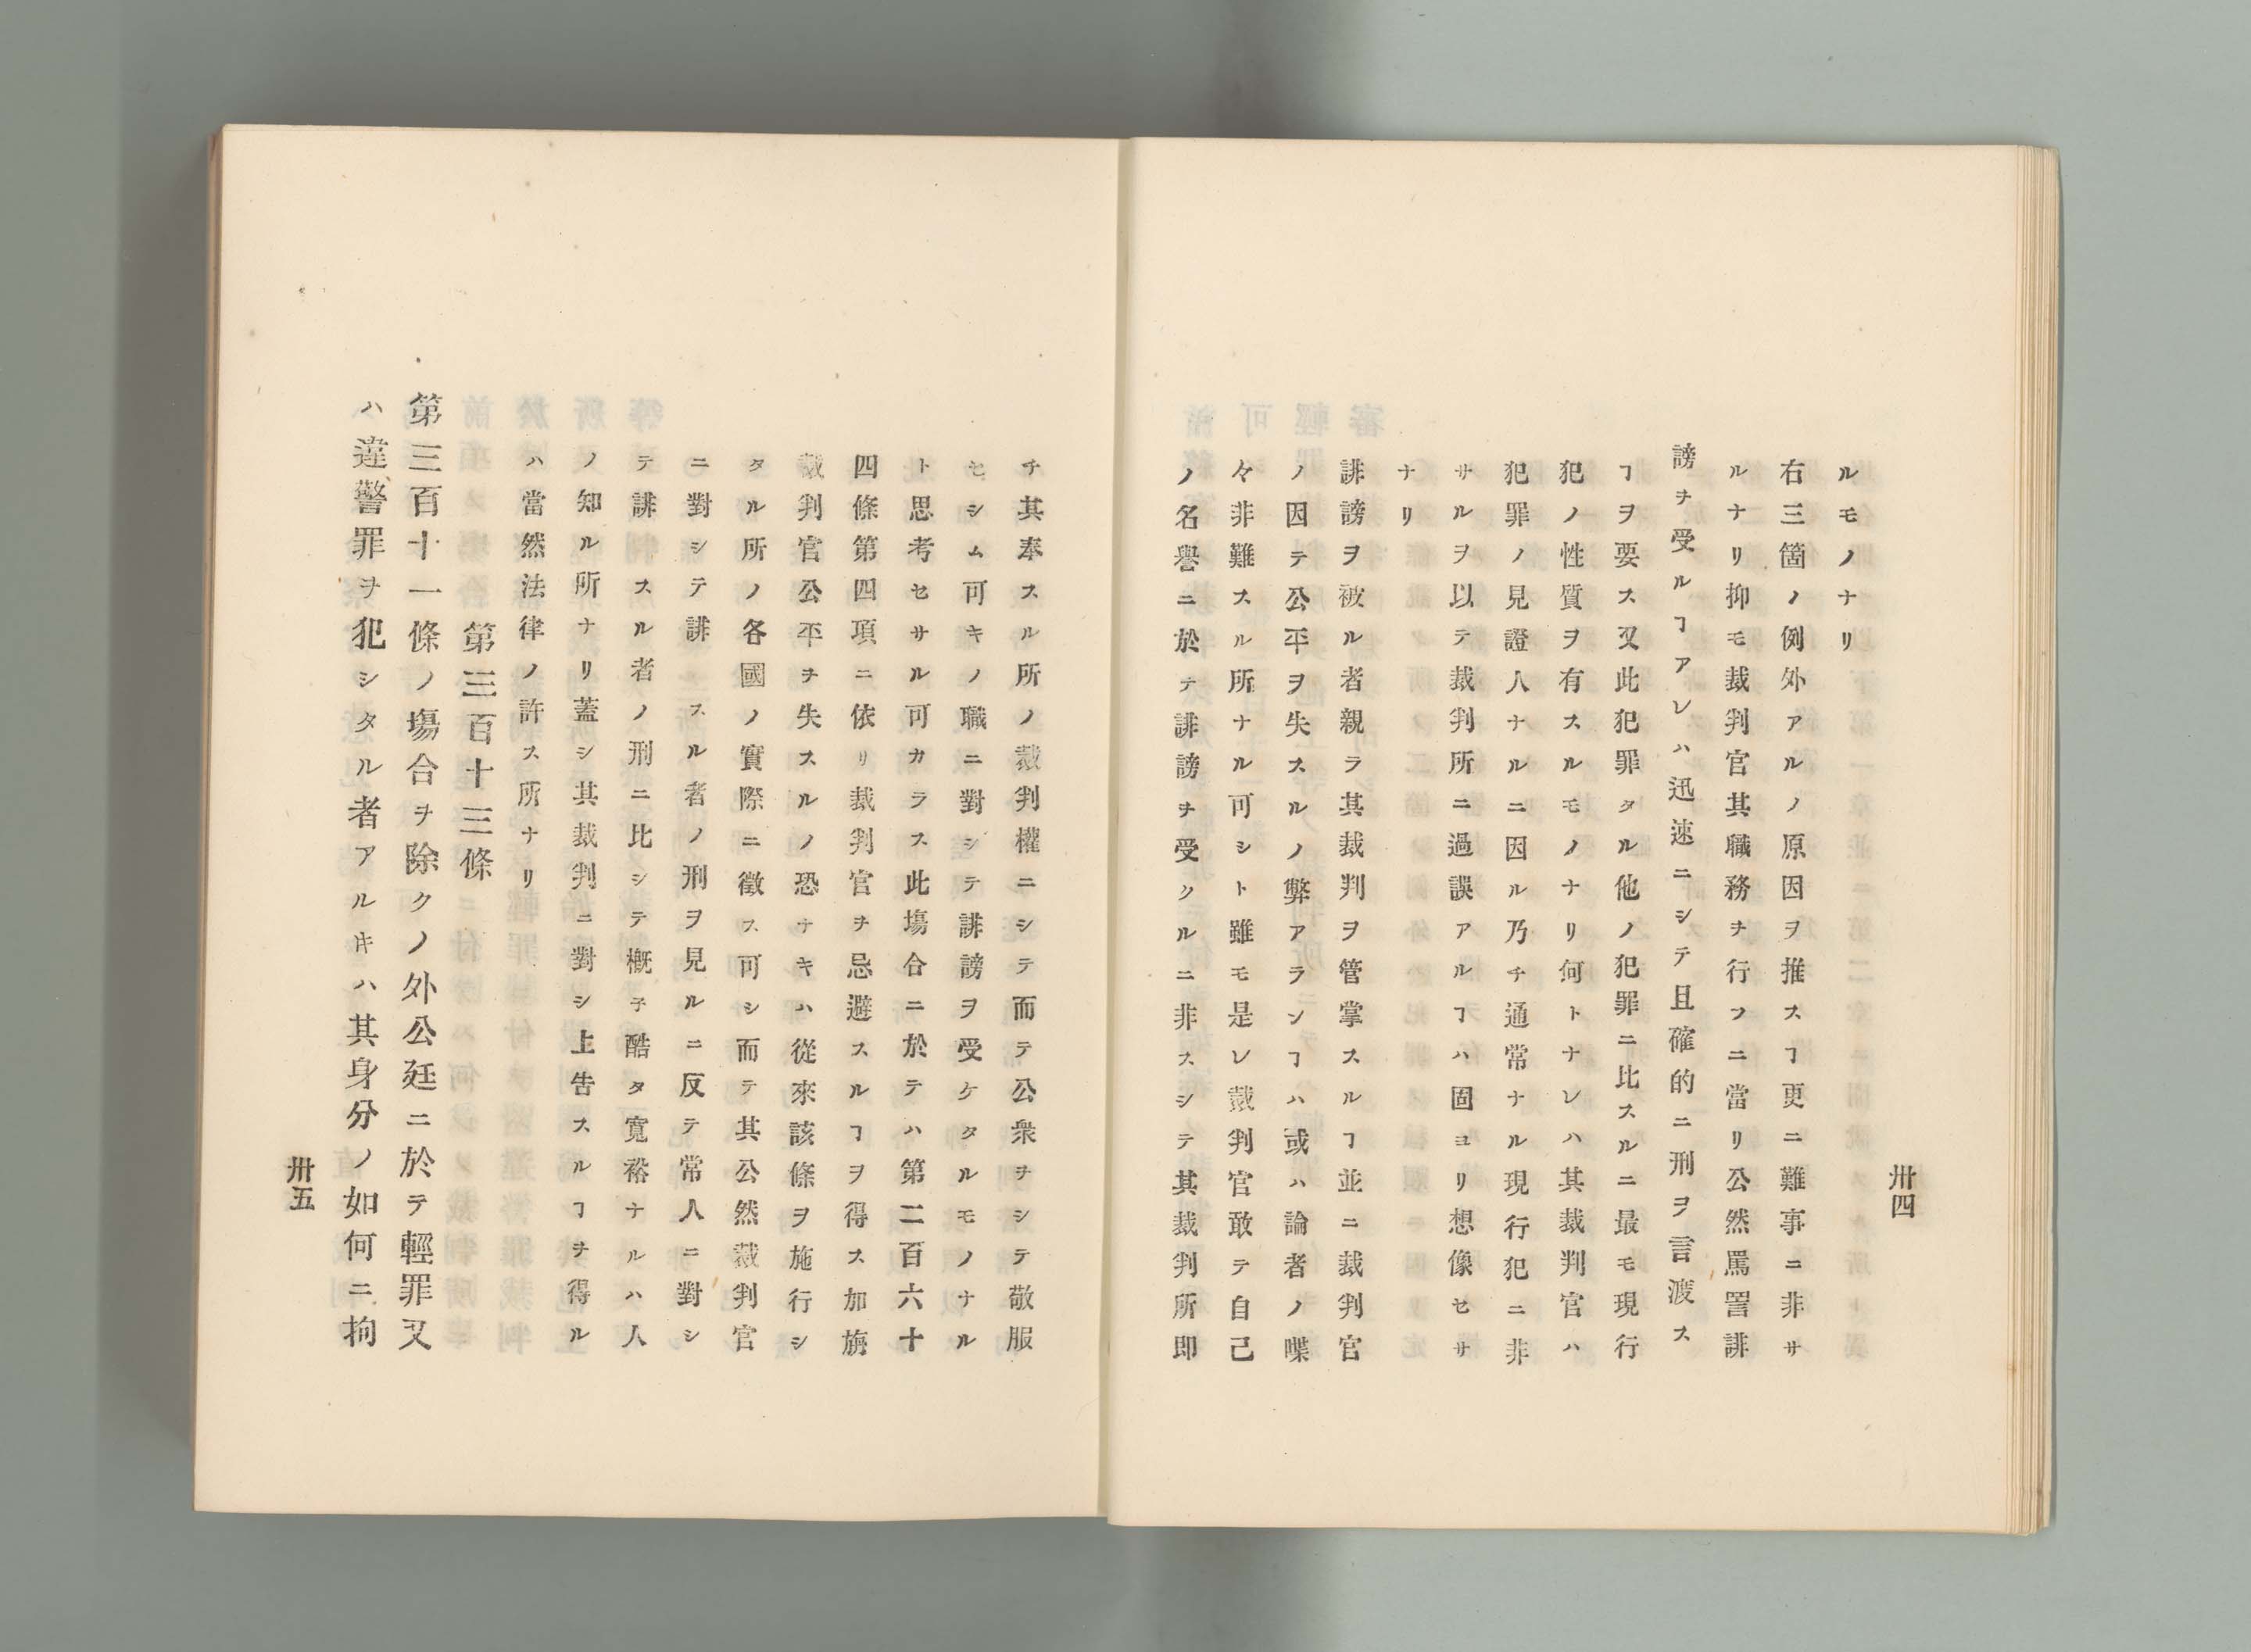 卅四
ルモノナリ
右三箇ノ例外アルノ原因ヲ推スヿ更ニ難事ニ非サ
ルナリ抑モ裁判官其職務ヲ行フニ當リ公然罵詈誹
謗ヲ受ルヿアレハ迅速ニシテ且確的ニ刑ヲ言渡ス
ヿヲ要ス又此犯罪タル他ノ犯罪ニ比スルニ最モ現行
犯ノ性質ヲ有スルモノナリ何トナレハ其裁判官ハ
犯罪ノ見證人ナルニ因ル乃チ通常ナル現行犯ニ非
サルヲ以テ裁判所ニ過誤アルヿハ固ヨリ想像セサ
ナリ
誹謗ヲ被ル者親ラ其裁判ヲ管掌スルヿ並ニ裁判官
ノ因テ公平ヲ失スルノ弊アランヿハ或ハ論者ノ喋
々非難スル所ナル可シト雖モ是レ裁判官敢テ自己
ノ名譽ニ於テ誹謗ヲ受クルニ非スシテ其裁判所即
チ其奉スル所ノ裁判權ニシテ而テ公衆ヲシテ敬服
セシム可キノ職ニ對シテ誹謗ヲ受ケタルモノナル
ト思考セサル可カラス此塲合ニ於テハ第二百六十
四條第四項ニ依リ裁判官ヲ忌避スルヿヲ得ス加旃
裁判官公平ヲ失スルノ恐ナキハ從來該條ヲ施行シ
タル所ノ各國ノ實際ニ徵ス可シ而テ其公然裁判官
ニ對シテ誹スル者ノ刑ヲ見ルニ反テ常人ニ對シ
テ誹スル者ノ刑ニ比シテ概子酷タ寬裕ナルハ人
ノ知ル所ナリ蓋シ其裁判ニ對シ上告スルヿヲ得ル
ハ當然法律ノ許ス所ナリ
第三百十三條
第三百十一條ノ塲合ヲ除クノ外公廷ニ於テ輕罪又
ハ違警罪ヲ犯シタル者アルキハ其身分ノ如何ニ拘
卅五